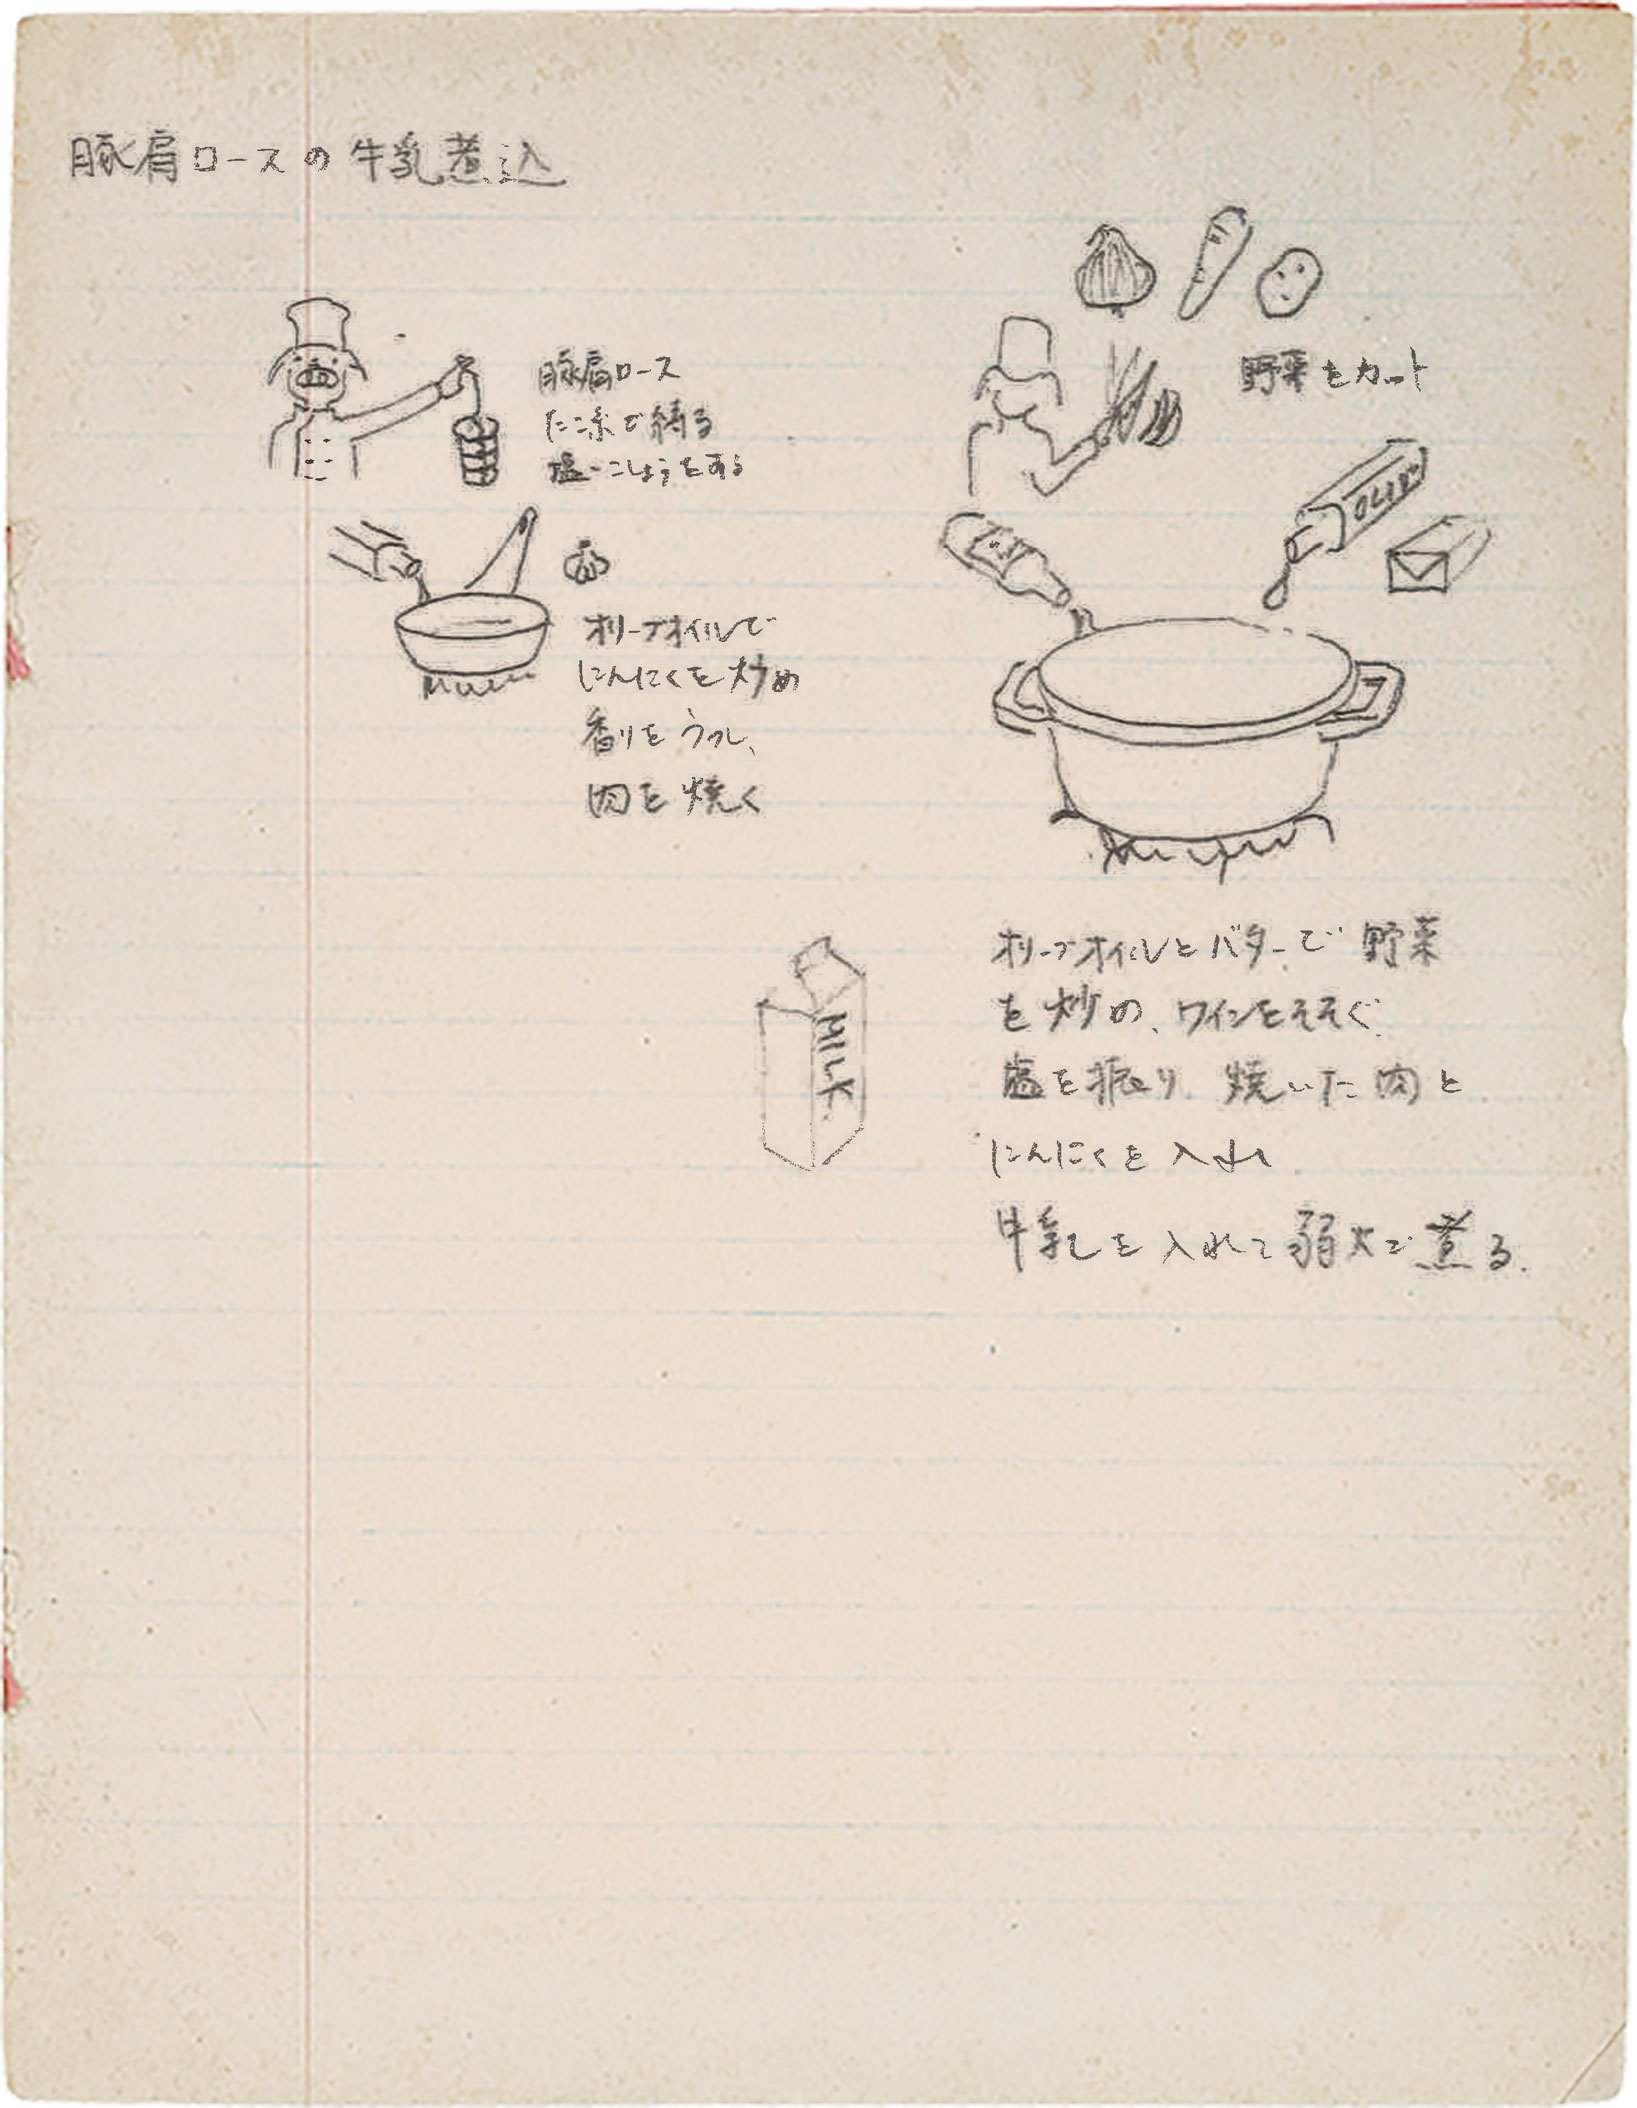 豚肩ロースの牛乳煮込
豚肩ロース
たこ糸で縛る
塩・こしょうをする
オリーブオイルで
にんにくを炒め
香りをうつし、
肉を焼く
野菜をカット
OLIVE
オリーブオイルとバターで野菜
を炒め、ワインをそそぐ
塩を振り、焼いた肉と
にんにくを入れ
牛乳を入れて弱火で煮る.
MILK